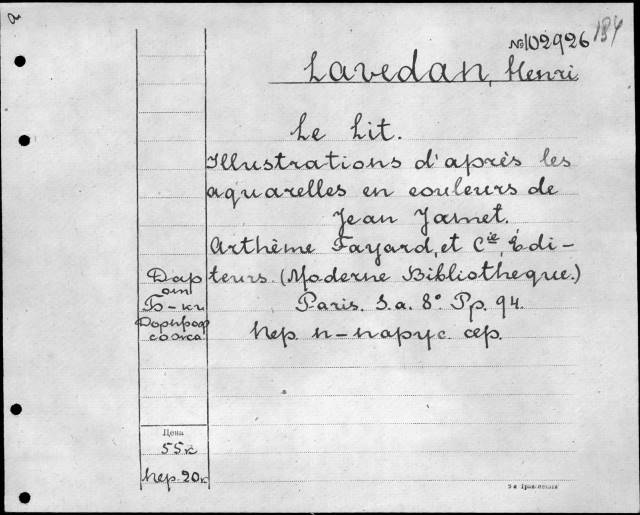 №102926 184
Lavedan, Henri
Le Lit.
Illustrations d'après les
aquarelles en couleurs de
Jean Jamet.
Arthème Fayard, et Cie, Édi-
teurs. (Moderne Bibliothèque.)
Paris. S.a. 8° Pp. 94.
Пер. п-парус. сер.
Дар
от
Б-ки
Цена
55к
Пер. 20к